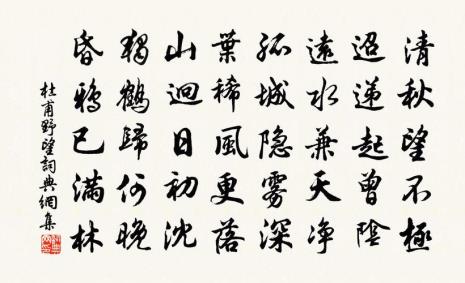 清秋望不極
迢遞起曾陰
遠水兼天净
孤城隐霧深
葉稀風更落
山迥日初沈
獨鶴歸何晚
昏鴉已滿林
杜甫野望詞典網集